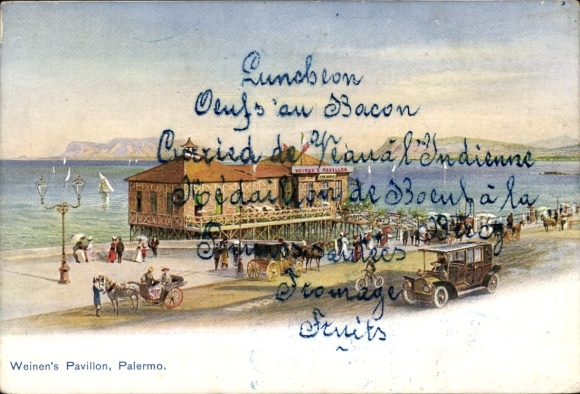 Luncheon
Oeufs au Bacon
Curried de Veau à l'Indienne
WEINEN'S PAVILLON
Médaillon de Boeuf à la
Fromage
Fruits
Weinen's Pavillon, Palermo.